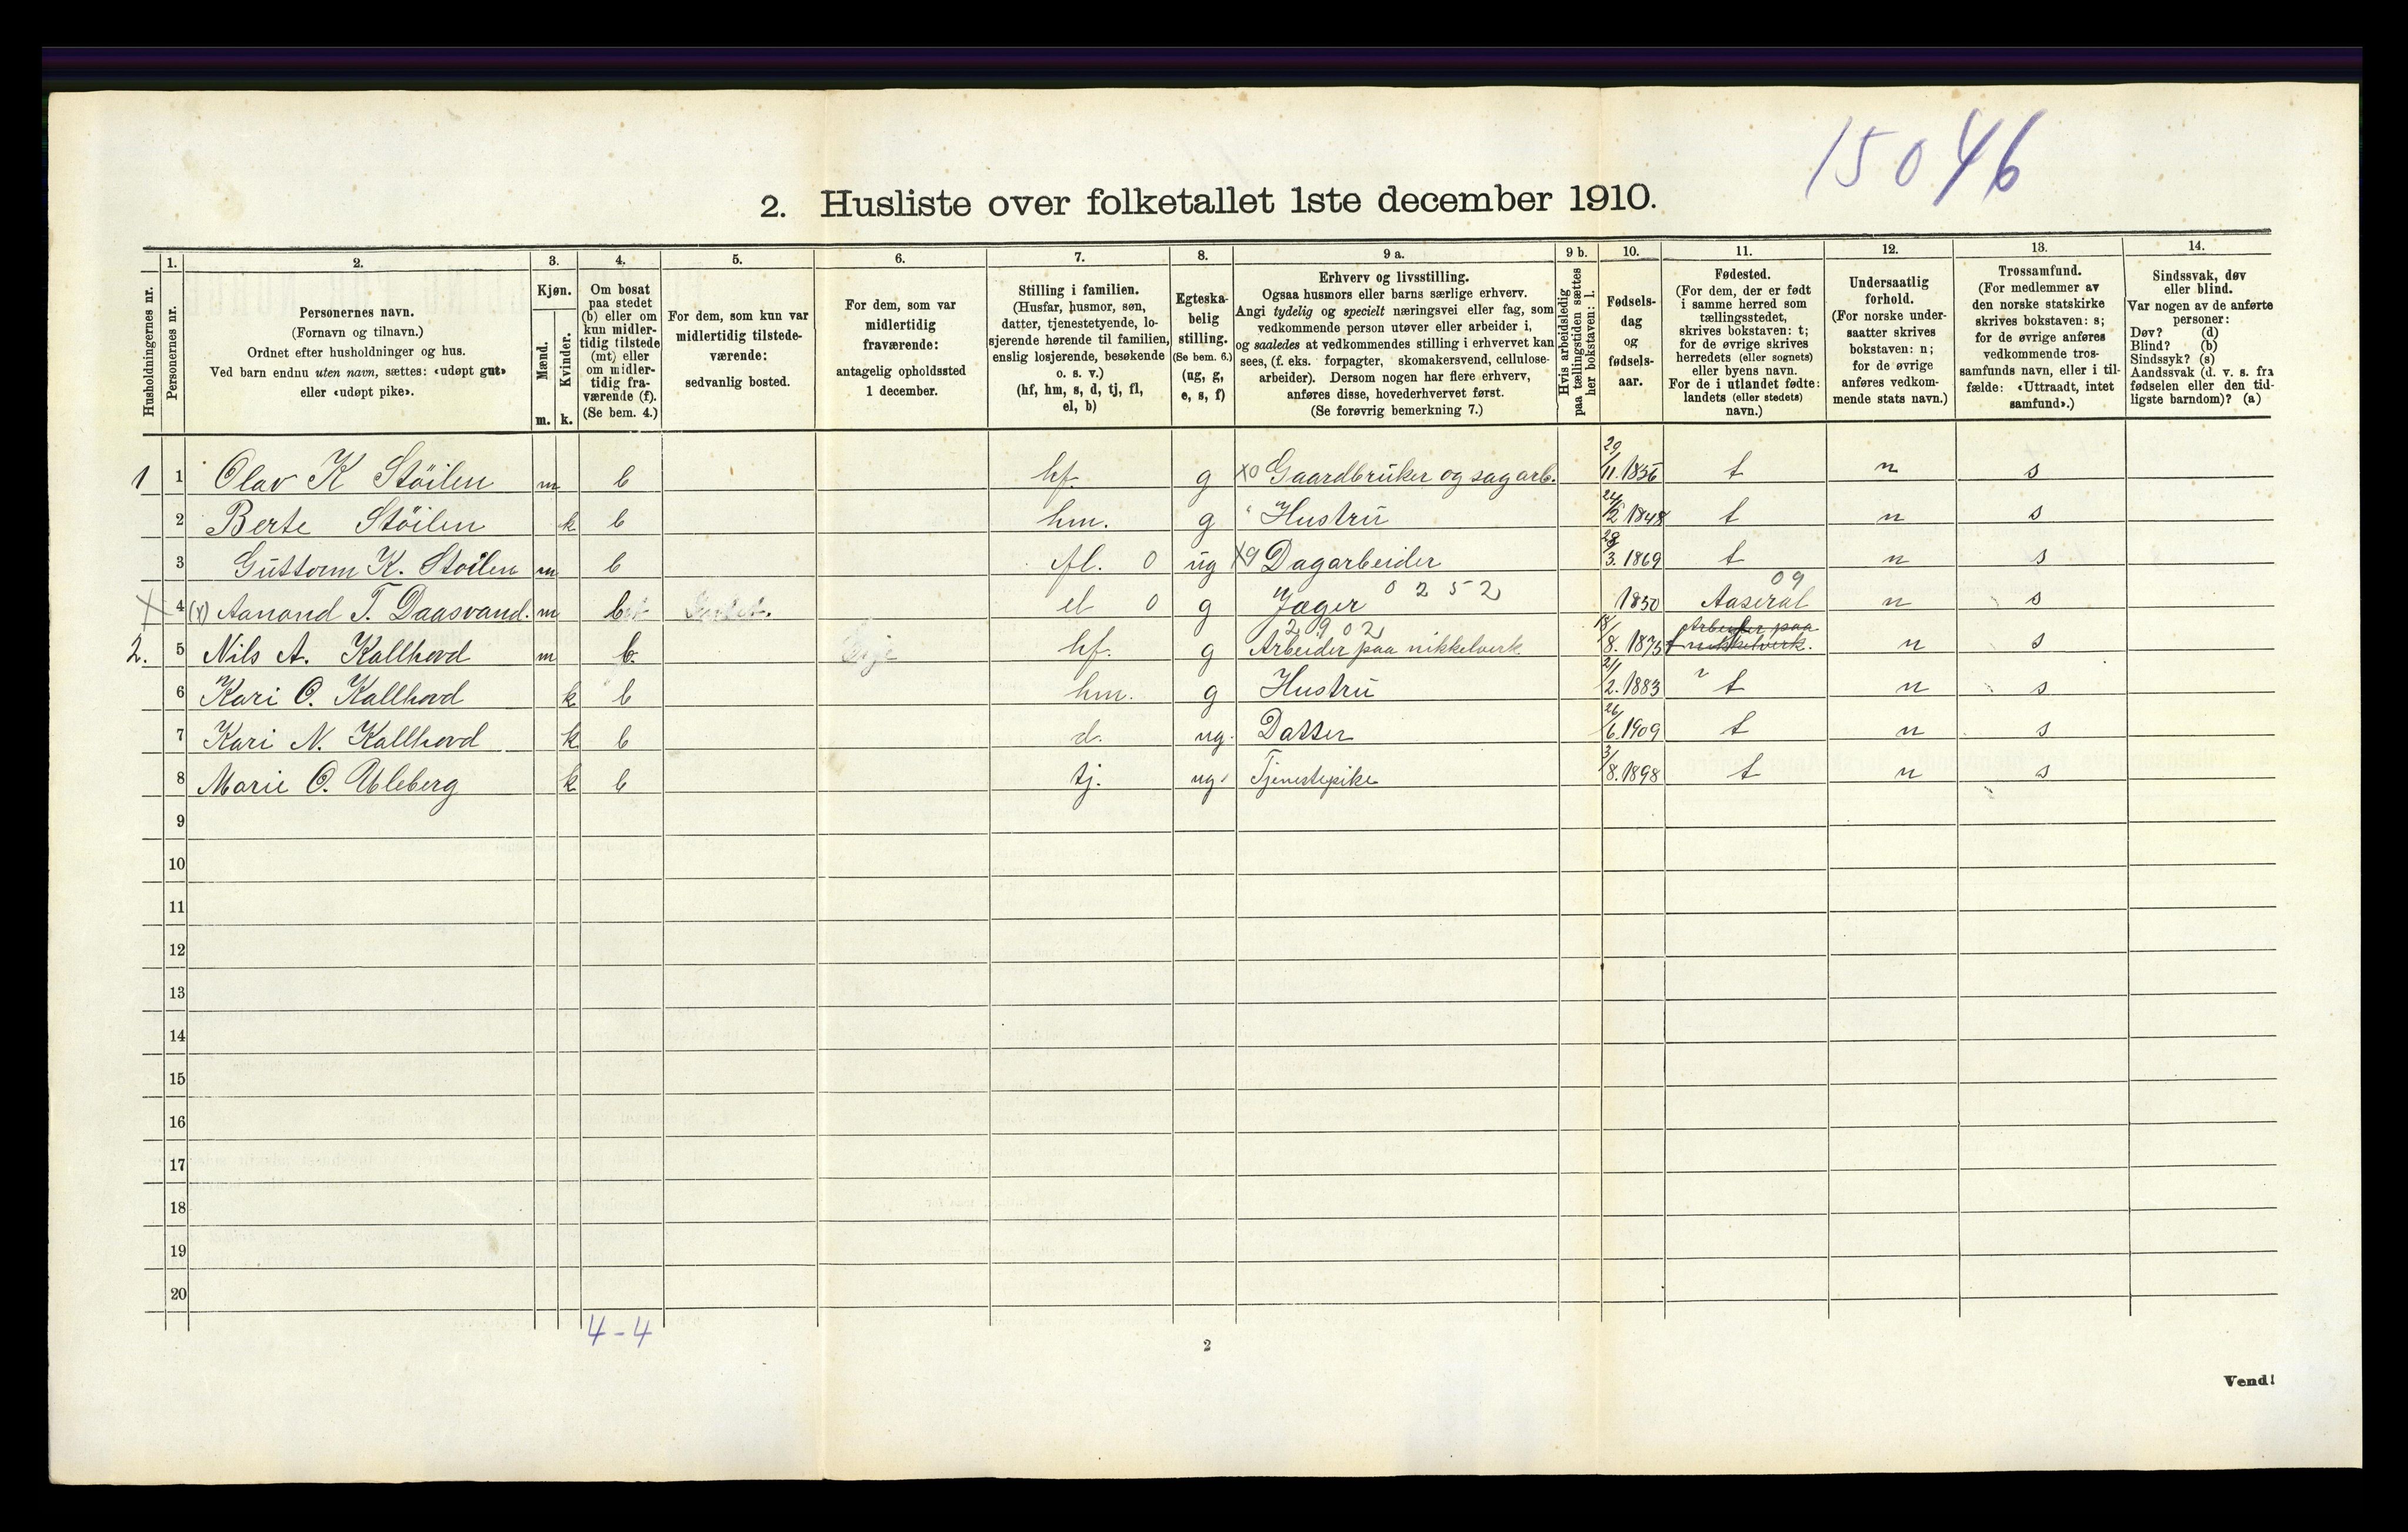 15046
2. Husliste over folketallet 1ste december 1910.
Husholdningernes nr.
1.
Personernes nr.
2.
Personernes navn.
(Fornavn og tilnavn.)
Ordnet efter husholdninger og hus.
Ved barn endnu uten navn, sættes: «udøpt gut»
eller «udøpt pike».
3.
Kjøn.
Mænd.
m.
Kvinder.
k.
4.
Om bosat
paa stedet
(b) eller om
kun midler-
tidig tilstede
(mt) eller
om midler-
tidig fra-
værende (f).
(Se bem. 4.)
5.
For dem, som kun var
midlertidig tilstede-
værende:
sedvanlig bosted.
6.
For dem, som var
midlertidig
fraværende:
antagelig opholdssted
1 december.
7.
Stilling i familien.
(Husfar, husmor, søn,
datter, tjenestetyende, lo-
sjerende hørende til familien,
enslig losjerende, besøkende
o. s. v.)
(hf, hm, s, d, tj, fl,
el, b)
8.
Egteska-
belig
stilling.
(Se bem. 6.)
(ug, g,
e, s, f)
9 a.
Erhverv og livsstilling.
Ogsaa husmors eller barns særlige erhverv.
Angi tydelig og specielt næringsvei eller fag, som
vedkommende person utøver eller arbeider i,
og saaledes at vedkommendes stilling i erhvervet kan
sees, (f. eks. forpagter, skomakersvend, cellulose-
arbeider). Dersom nogen har flere erhverv,
anføres disse, hovederhvervet først.
(Se forøvrig bemerkning 7.)
9 b.
Hvis arbeidsledig
paa tællingstiden sættes
her bokstaven: l.
10.
Fødsels-
dag
og
fødsels-
aar.
11.
Fødested.
(For dem, der er født
i samme herred som
tællingsstedet,
skrives bokstaven: t;
for de øvrige skrives
herredets (eller sognets)
eller byens navn.
For de i utlandet fødte:
landets (eller stedets)
navn.)
12.
Undersaatlig
forhold.
(For norske under-
saatter skrives
bokstaven: n;
for de øvrige
anføres vedkom-
mende stats navn.)
13.
Trossamfund.
(For medlemmer av
den norske statskirke
skrives bokstaven: s;
for de øvrige anføres
vedkommende tros-
samfunds navn, eller i til-
fælde: «Uttraadt, intet
samfund».)
14.
Sindssvak, døv
eller blind.
Var nogen av de anførte
personer:
Døv? (d)
Blind? (b)
Sindssyk? (s)
Aandssvak (d. v. s. fra
fødselen eller den tid-
ligste barndom)? (a)
1 1 Olav K Stöilen m b hf. g X0 Gaardbruker og sagarb. 29/11. t n s
2 Berte Stöilen k b hm. g Hustru 24/2 1848 t n s
3 Guttorm K. Stoilen m b fl. 0 ug X9 Dagarbeider 28/3. 1869 t n s
X 4 (x) Aanond T. Daasvand. m b el 0 g Jæger 0252 1850 Aaseral 09 n s
2902
2. 5 Nils A. Kallhovd m b. Evje hf. g Arbeider paa nikkelverk 18/8. 1875 t Arbeider paa nikkelverk. n s
6 Kari O. Kallhovd k b hm. g Hustru 21/2. 1883 t n s
7 Kari N. Kallhovd k b d. ug. Datter 26/6. 1909 t n s
8 Marie O. Uleberg k b tj. ug. Tjenestepike 3/8. 1898 t n s
9
10
11
12
13
14
15
16
17
18
19
20
4-4
2
Vend!